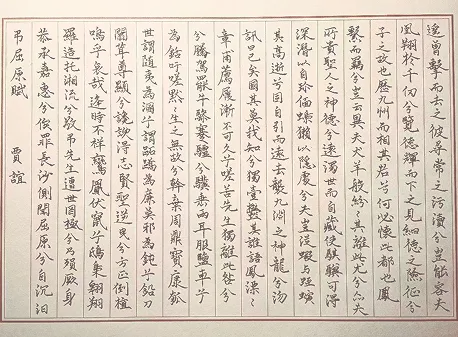 吊屈原賦　賈誼
恭承嘉惠兮俟罪長沙側聞屈原兮自沉汨
羅造托湘流兮敬吊先生遭世罔極兮乃殞厥身
嗚乎哀哉逢時不祥鸞鳳伏竄兮鴟梟翱翔
闒茸尊顯兮讒諛得志賢聖逆曳兮方正倒植
世謂隨夷為溷兮謂跖蹻為廉莫邪為鈍兮鉛刀
為銛吁嗟默〻生之無故兮斡棄周鼎寶康瓠
兮騰駕罷牛驂蹇驢兮驥垂兩耳服鹽車兮
章甫薦屨漸不可久兮嗟苦先生獨離此咎兮
訊曰已矣國其莫我知兮獨壹鬱其誰語鳳漂〻
其高逝兮固自引而遠去襲九淵之神龍兮沕
深潛以自珍偭蟂獺以隱處兮夫豈從蝦與蛭螾
所貴聖人之神德兮遠濁世而自藏使騏驥可得
繫而羈兮豈云異夫犬羊般紛〻其離此尤兮亦夫
子之故也歷九州而相其君兮何必懷此都也鳳
凰翔於千仞兮覽德輝而下之見細德之險徵兮
遙曾擊而去之彼尋常之污瀆兮豈能容夫